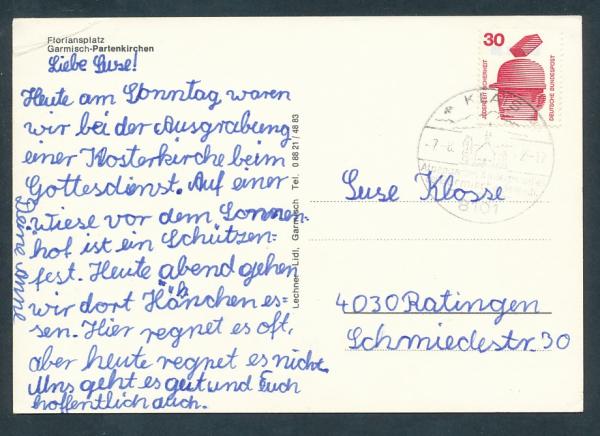 Floriansplatz
Garmisch-Partenkirchen
Liebe Suse!
Heute am Sonntag waren
wir bei der Ausgrabung
einer Klosterkirche beim
Gottesdienst. Auf einer
Wiese vor dem Sonnen-
hof ist ein Schützen-
fest. Heute abend gehen
wir dort Hänchen es=
sen. Hier regnet es oft,
aber heute regnet es nicht.
Uns geht es gut und Euch
hoffentlich auch.
Deine Anne
Lechner Lidl, Garmisch Tel. 0 88 21 / 48 83
30
JEDERZEIT SICHERHEIT
DEUTSCHE BUNDESPOST
8101
Suse Klosse
4030 Ratingen
Schmiedestr. 30